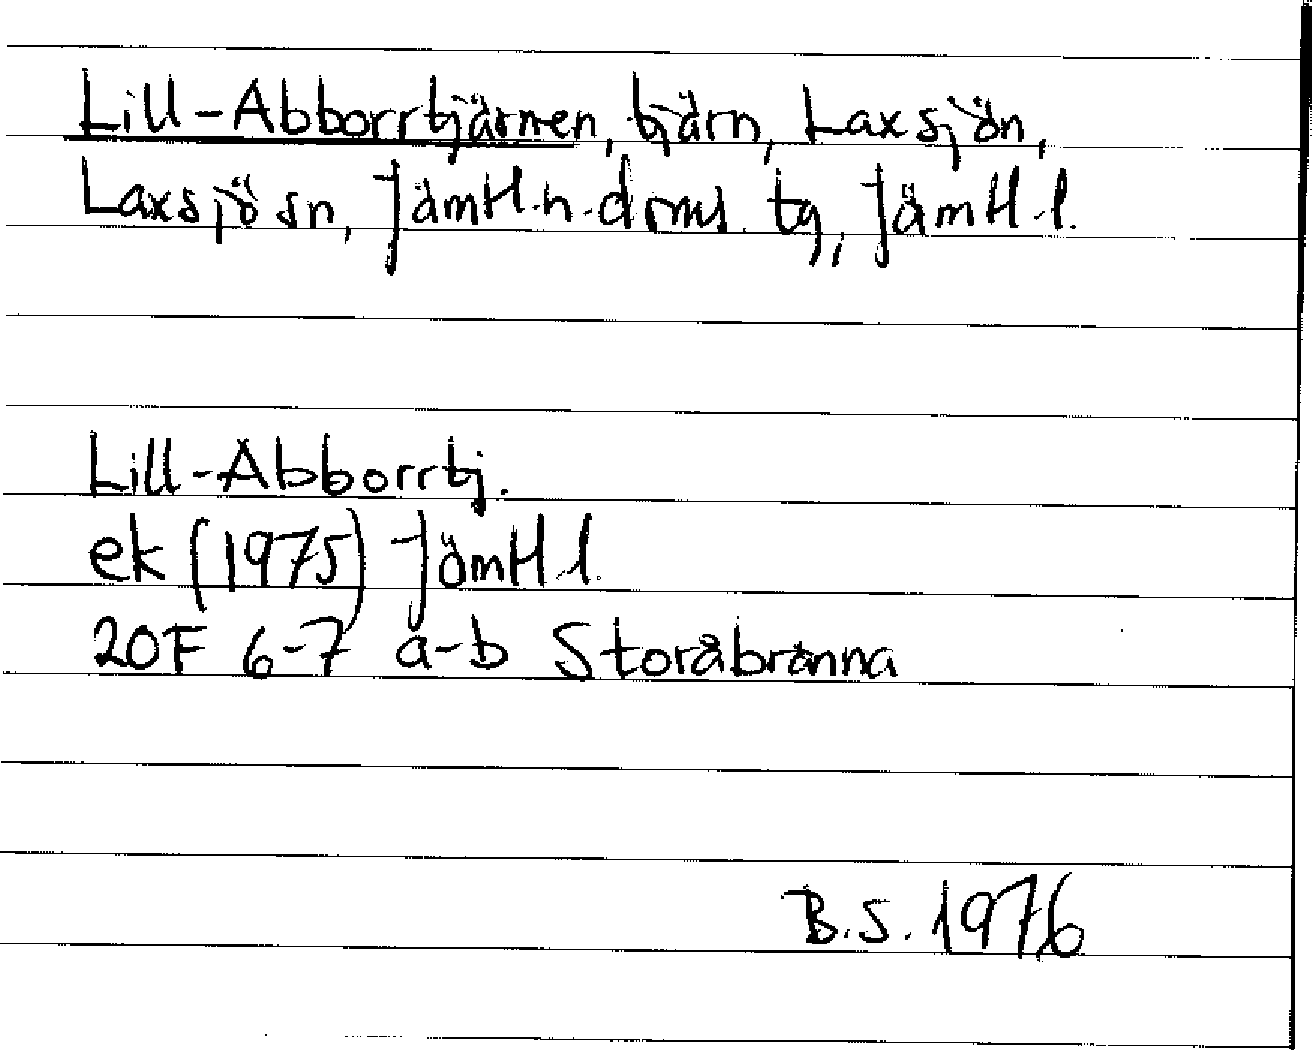 Lill-Abborrtjärnen, tjärn, Laxsjön,
Laxsjö sn, Jämtl. n. doms. tg, Jämtl. l.
Lill-Abborrtj.
ek (1975) Jämtl. l.
20F 6-7 a-b Storåbränna
B.S. 1976